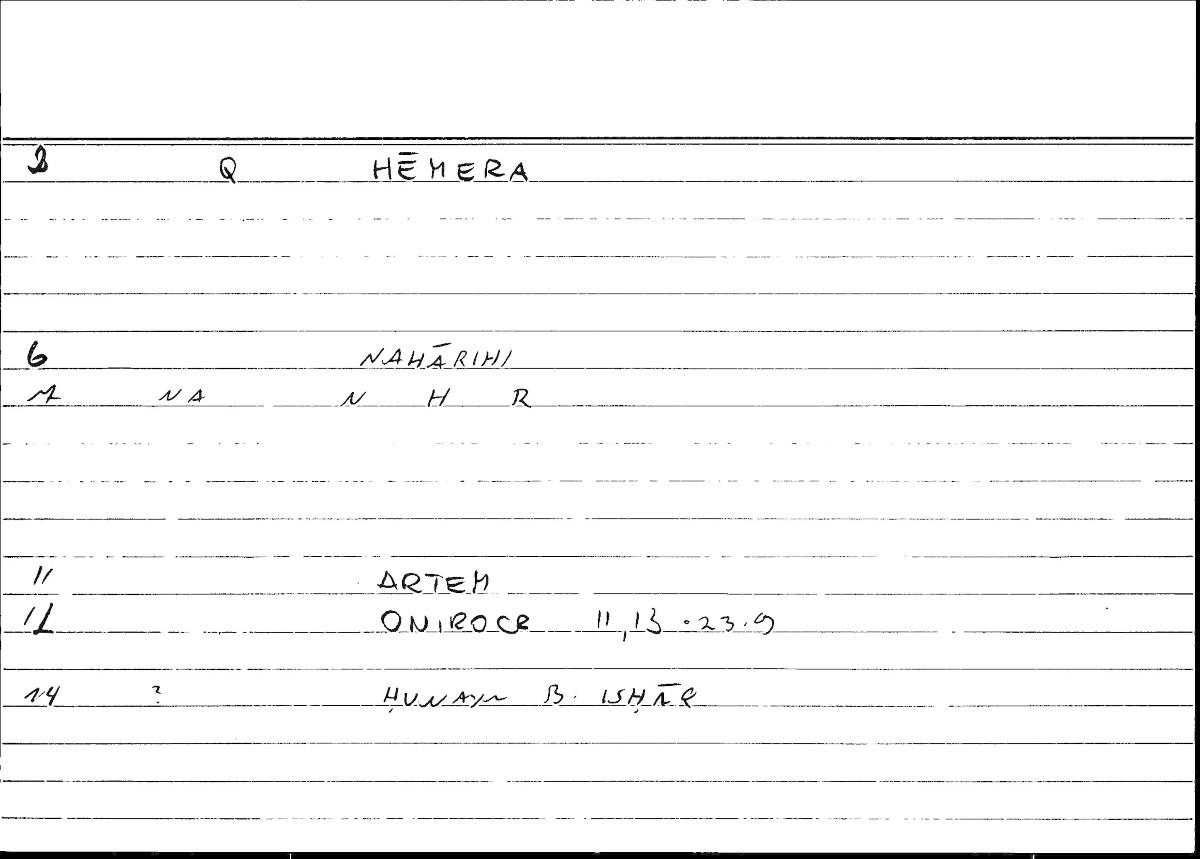 2 Q HĒMERA
6 NAHĀRIHI
M NA N H R
11 ARTEM
12 ONIROCR 11,13 · 23.9
14 ? ḤUNAYN B. ISḤĀQ